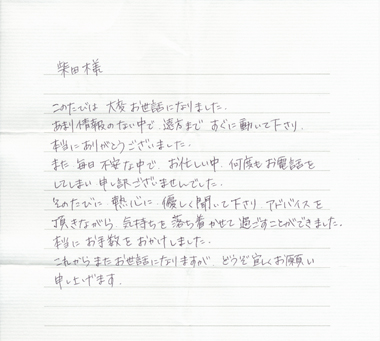 柴田様
このたびは 大変お世話になりました.
あまり情報のない中で 遠方まで すぐに動いて下さり.
本当にありがとうございました.
また 毎日 不安な中で お忙しい中 何度もお電話を
してしまい 申し訳ございませんでした.
そのたびに 熱心に 優しく聞いて下さり アドバイスを
頂きながら 気持ちを 落ち着かせて 過ごすことができました.
本当に お手数を おかけしました.
これからまたお世話になりますが どうぞ宜しくお願い
申し上げます.